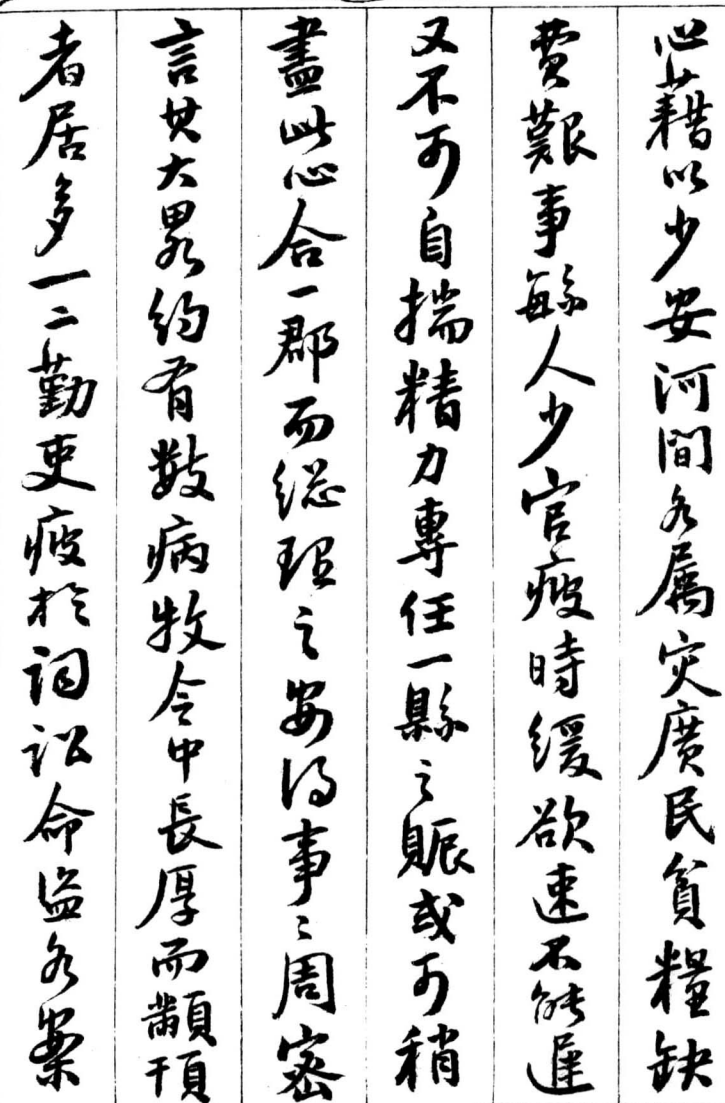 心藉以少安河間各屬灾廣民貧糧缺
費艱事繁人少官疲時緩欲速不能遲
又不可自揣精力專任一縣之賑或可稍
盡此心合一郡而総理之安得事〻周密
言其大畧約有數病牧令中長厚而顢頇
者居多一二勤吏疲於詞訟命盜各案